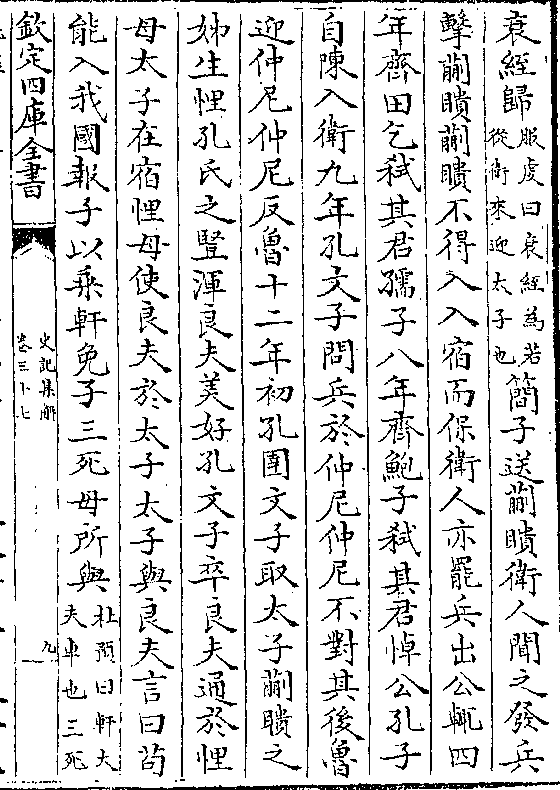 衰絰歸服虔曰衰絰為若從衛來迎太子也簡子送蒯聵衛人聞之發兵
擊蒯聵蒯聵不得入入宿而保衛人亦罷兵出公輒四
年齊田乞弒其君孺子八年齊鮑子弒其君悼公孔子
自陳入衛九年孔文子問兵於仲尼仲尼不對其後魯
迎仲尼仲尼反魯十二年初孔圉文子取太子蒯聵之
姊生悝孔氏之豎渾良夫美好孔文子卒良夫通於悝
母太子在宿悝母使良夫於太子太子與良夫言曰苟
能入我國報子以乘軒免子三死毋所與杜預曰軒大夫車也三死
欽定四庫全書
史記集解
卷三十七
九